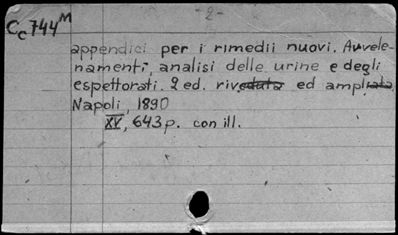 - 2 -
Cc 744 M
appendici per i rimedii nuovi. Avvele-
namenti, analisi delle urine e degli
espettorati. 2 ed. riveduta ed ampliata.
Napoli, 1890
XV, 643 p. con ill.